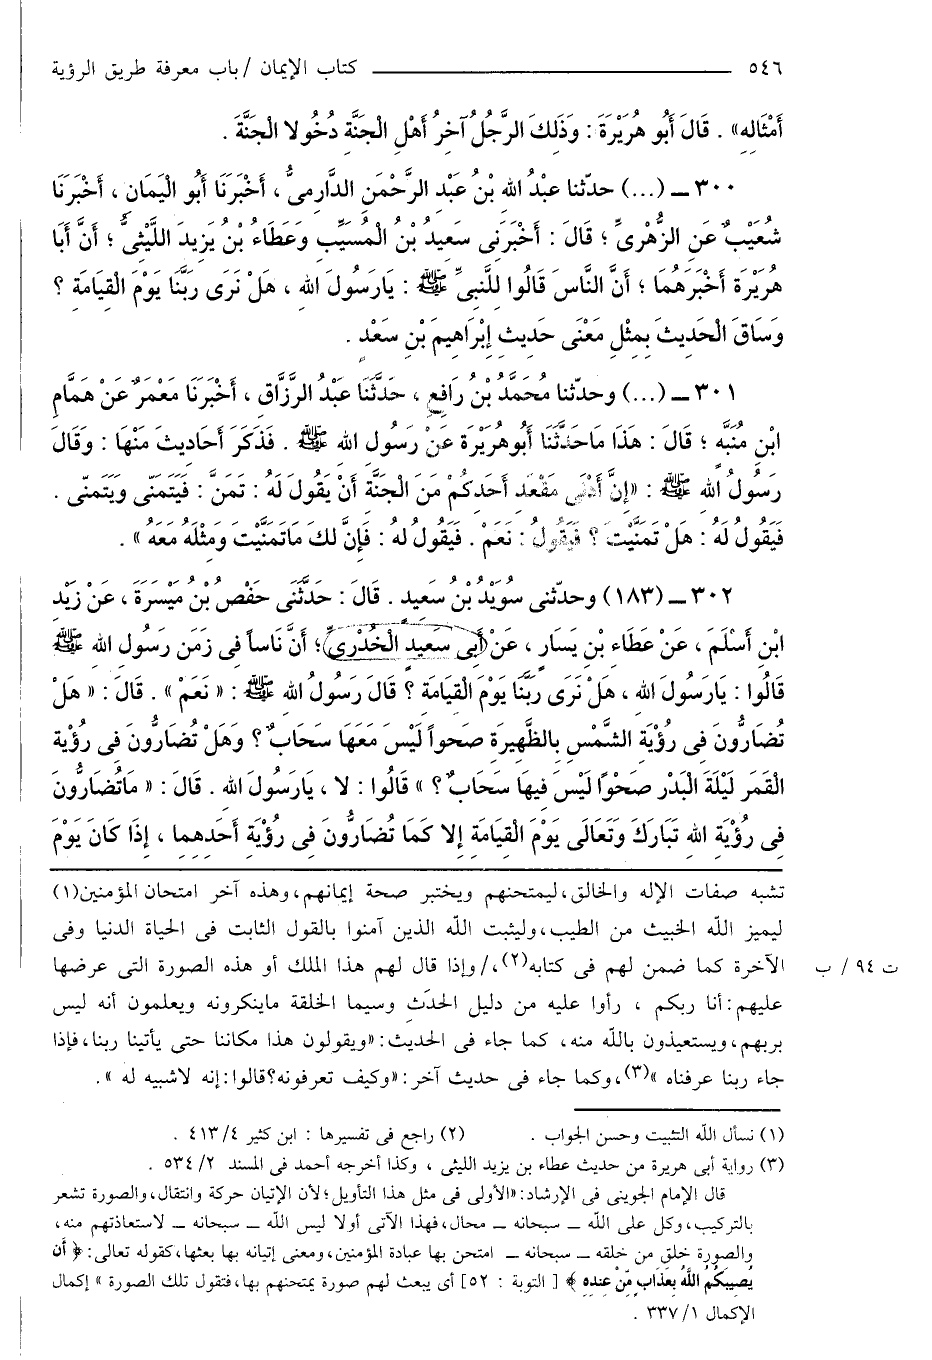 ٥٤٦ ــــــــــــ كتاب الإيمان / باب معرفة طريق الرؤية
أَمْثَالِهِ» . قَالَ أَبُو هُرَيْرَةَ : وَذَلِكَ الرَّجُلُ آخِرُ أَهْلِ الْجَنَّةِ دُخُولا الْجَنَّةَ .
٣٠٠ ــ (...) حدّثنا عبْدُ اللهِ بْنُ عَبْدِ الرَّحْمَنِ الدَّارِمىُّ ، أَخْبَرَنَا أَبُو الْيَمَانِ ، أَخْبَرَنَا
شُعَيْبٌ عَنِ الزُّهْرِىِّ ؛ قَالَ : أَخْبَرَنِى سَعِيدُ بْنُ الْمُسَيِّبِ وَعَطَاءُ بْنُ يَزِيدَ اللَّيْثِىُّ ؛ أَنَّ أَبَا
هُرَيْرَةَ أَخْبَرَهُمَا ؛ أَنَّ النَّاسَ قَالُوا لِلنَّبِىِّ ﷺ : يَارَسُولَ اللهِ ، هَلْ نَرَى رَبَّنَا يَوْمَ الْقِيَامَةِ ؟
وَسَاقَ الْحَدِيثَ بِمِثْلِ مَعْنَى حَدِيثِ إِبْرَاهِيمَ بْنِ سَعْدٍ .
٣٠١ ــ (...) وحدّثنا مُحَمَّدُ بْنُ رَافِعٍ ، حَدَّثَنَا عَبْدُ الرَّزَّاقِ ، أَخْبَرَنَا مَعْمَرٌ عَنْ هَمَّامِ
ابْنِ مُنَبِّهٍ ؛ قَالَ : هَذَا مَاحَدَّثَنَا أَبُوهُرَيْرَةَ عَنْ رَسُولِ اللهِ ﷺ . فَذَكَرَ أَحَادِيثَ مِنْهَا : وَقَالَ
رَسُولُ اللهِ ﷺ : «إِنَّ أَدْنَى مَقْعَدِ أَحَدِكُمْ مِنَ الْجَنَّةِ أَنْ يَقُولَ لَهُ : تَمَنَّ : فَيَتَمَنَّى وَيَتَمَنَّى .
فَيَقُولُ لَهُ : هَلْ تَمَنَّيْتَ ؟ فَيَقُولُ : نَعَمْ . فَيَقُولُ لَهُ : فَإِنَّ لَكَ مَاتَمَنَّيْتَ وَمِثْلَهُ مَعَهُ» .
٣٠٢ ــ (١٨٣) وحدّثنى سُوَيْدُ بْنُ سَعِيدٍ . قَالَ : حَدَّثَنِى حَفْصُ بْنُ مَيْسَرَةَ ، عَنْ زَيْدِ
ابْنِ أَسْلَمَ ، عَنْ عَطَاءِ بْنِ يَسَارٍ ، عَنْ أَبِى سَعِيدٍ الْخُدْرِىِّ ؛ أَنَّ نَاساً فِى زَمَنِ رَسُولِ اللهِ ﷺ
قَالُوا : يَارَسُولَ اللهِ ، هَلْ نَرَى رَبَّنَا يَوْمَ الْقِيَامَةِ ؟ قَالَ رَسُولُ اللهِ ﷺ : « نَعَمْ » . قَالَ : « هَلْ
تُضَارُّونَ فِى رُؤْيَةِ الشَّمْسِ بِالظَّهِيرَةِ صَحْواً لَيْسَ مَعَهَا سَحَابٌ ؟ وَهَلْ تُضَارُّونَ فِى رُؤْيَةِ
الْقَمَرِ لَيْلَةَ الْبَدْرِ صَحْوًا لَيْسَ فِيهَا سَحَابٌ ؟ » قَالُوا : لا ، يَارَسُولَ اللهِ . قَالَ : « مَاتُضَارُّونَ
فِى رُؤْيَةِ اللهِ تَبَارَكَ وَتَعَالَى يَوْمَ الْقِيَامَةِ إِلا كَمَا تُضَارُّونَ فِى رُؤْيَةِ أَحَدِهِمَا ، إِذَا كَانَ يَوْمُ
تشبه صفات الإله والخالق، ليمتحنهم ويختبر صحة إيمانهم، وهذه آخر امتحان المؤمنين(١)
ليميز الله الخبيث من الطيب، وليثبت الله الذين آمنوا بالقول الثابت فى الحياة الدنيا وفى
الآخرة كما ضمن لهم فى كتابه(٢)، / وإذا قال لهم هذا الملك أو هذه الصورة التى عرضها
ت ٩٤ / ب
عليهم: أنا ربكم ، رأوا عليه من دليل الحدَث وسيما الخلقة ماينكرونه ويعلمون أنه ليس
بربهم، ويستعيذون بالله منه، كما جاء فى الحديث: «ويقولون هذا مكاننا حتى يأتينا ربنا، فإذا
جاء ربنا عرفناه »(٣)، وكما جاء فى حديث آخر: «وكيف تعرفونه؟ قالوا: إنه لاشبيه له ».
(١) نسأل الله التثبيت وحسن الجواب . (٢) راجع فى تفسيرها : ابن كثير ٤/ ٤١٣ .
(٣) رواية أبى هريرة من حديث عطاء بن يزيد الليثى ، وكذا أخرجه أحمد فى المسند ٢/ ٥٣٤ .
قال الإمام الجوينى فى الإرشاد: «الأولى فى مثل هذا التأويل؛ لأن الإتيان حركة وانتقال، والصورة تشعر
بالتركيب، وكل على الله ــ سبحانه ــ محال، فهذا الآتى أولا ليس الله ــ سبحانه ــ لاستعاذتهم منه،
والصورة خلق من خلقه ــ سبحانه ــ امتحن بها عبادة المؤمنين، ومعنى إتيانه بها بعثها، كقوله تعالى: ﴿ أَن
يُصِيبَكُمُ اللَّهُ بِعَذَابٍ مِّنْ عِندِهِ ﴾ [ التوبة : ٥٢] أى يبعث لهم صورة يمتحنهم بها، فتقول تلك الصورة » إكمال
الإكمال ١/ ٣٣٧ .